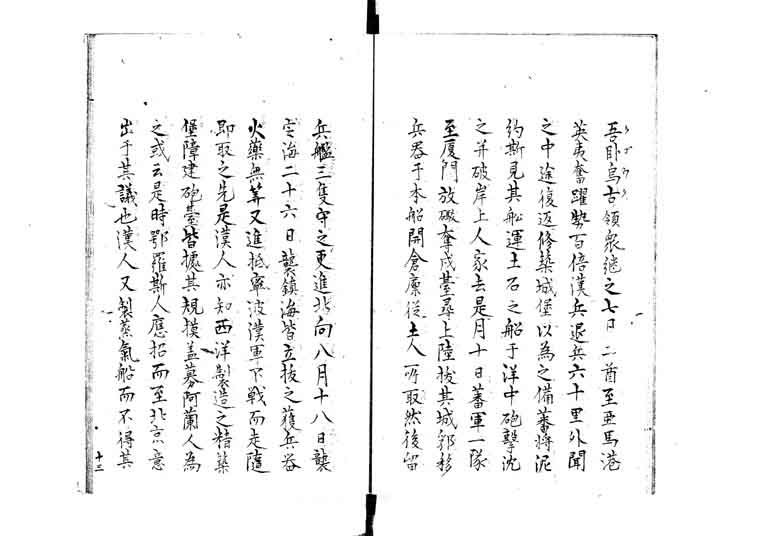 吾卧烏古領衆継之七日二酋至亜馬港
ウゴウグ
英夷奮躍勢百倍漢兵退兵六十里外聞
之中途復返修築城堡以為之備蕃将泥
約斯見其舩運土石之船于洋中砲撃沈
之并破岸上人家去是月十日蕃軍一隊
至厦門放礮奪戍臺尋上陸抜其城郭移
兵器于本船開倉廩従土人所取然後留
兵艦三隻守之更進北向八月十八日襲
定海二十六日襲鎮海皆立抜之獲兵器
火藥無筭又進抵寧波漢軍不戦而走随
即取之先是漢人亦知西洋製造之精築
堡障建砲臺皆據其規摸盖募阿蘭人為
之或云是時鄂羅斯人應招而至北京意
出于其議也漢人又製蒸氣船而不得其
十三